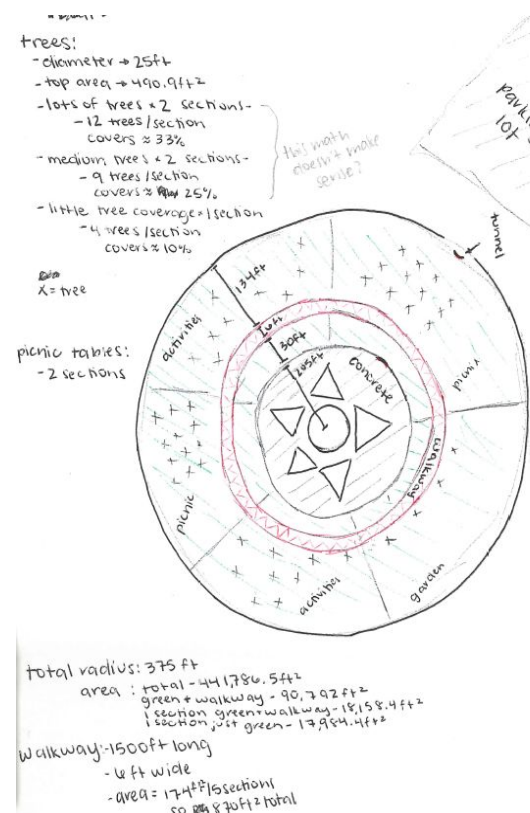 trees:
-diameter → 25ft
-top area → 490.9ft²
-lots of trees × 2 sections-
-12 trees/section
covers ≈ 33%
-medium trees × 2 sections-
-9 trees/section
covers ≈ 25%
-little tree coverage × 1 section
-4 trees/section
covers ≈ 10%
this math
doesn't make
sense?
X = tree
parking
lot
tunnel
picnic tables:
-2 sections
activities
134ft
6ft
30ft
205ft
concrete
picnic
walkway
picnic
activities
garden
total radius: 375 ft
area: total - 441,786.5ft²
green + walkway - 90,792ft²
1 section green+walkway - 18,158.4ft²
1 section just green - 17,984.4ft²
walkway: -1500ft long
-6ft wide
-area = 174ft²/5sections
so 870ft² total